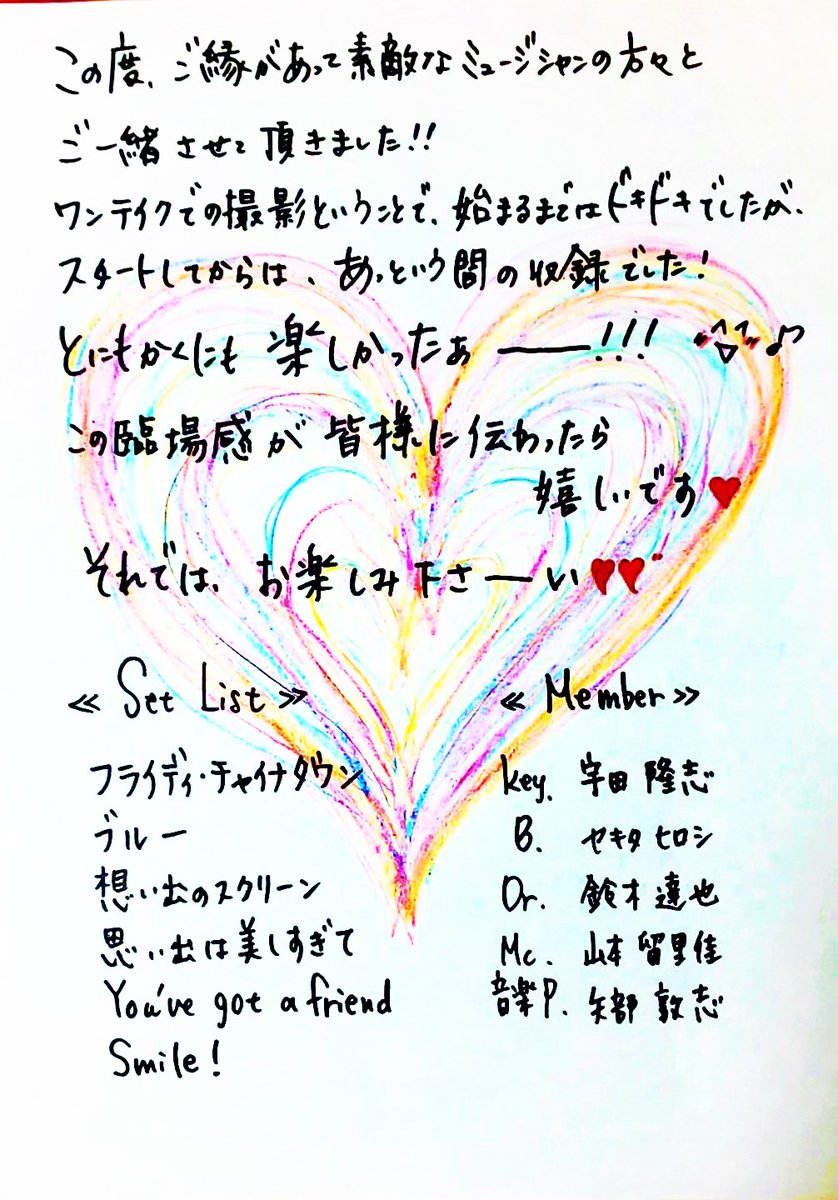 この度、ご縁があって素敵なミュージシャンの方々と
ご一緒させて頂きました!!
ワンテイクでの撮影ということで、始まるまではドキドキでしたが、
スタートしてからは、あっという間の収録でした!
とにもかくにも 楽しかったぁ ――!!! ♪
この臨場感が 皆様に伝わったら
嬉しいです♥
それでは、お楽しみ下さーい♥♥
≪ Set List ≫
フライディ・チャイナタウン
ブルー
想い出のスクリーン
思い出は美しすぎて
You've got a friend
Smile!
≪ Member ≫
Key. 宇田 隆志
B. セキタ ヒロシ
Dr. 鈴木 達也
Mc. 山本 留里佳
音楽P. 矢部 敦志